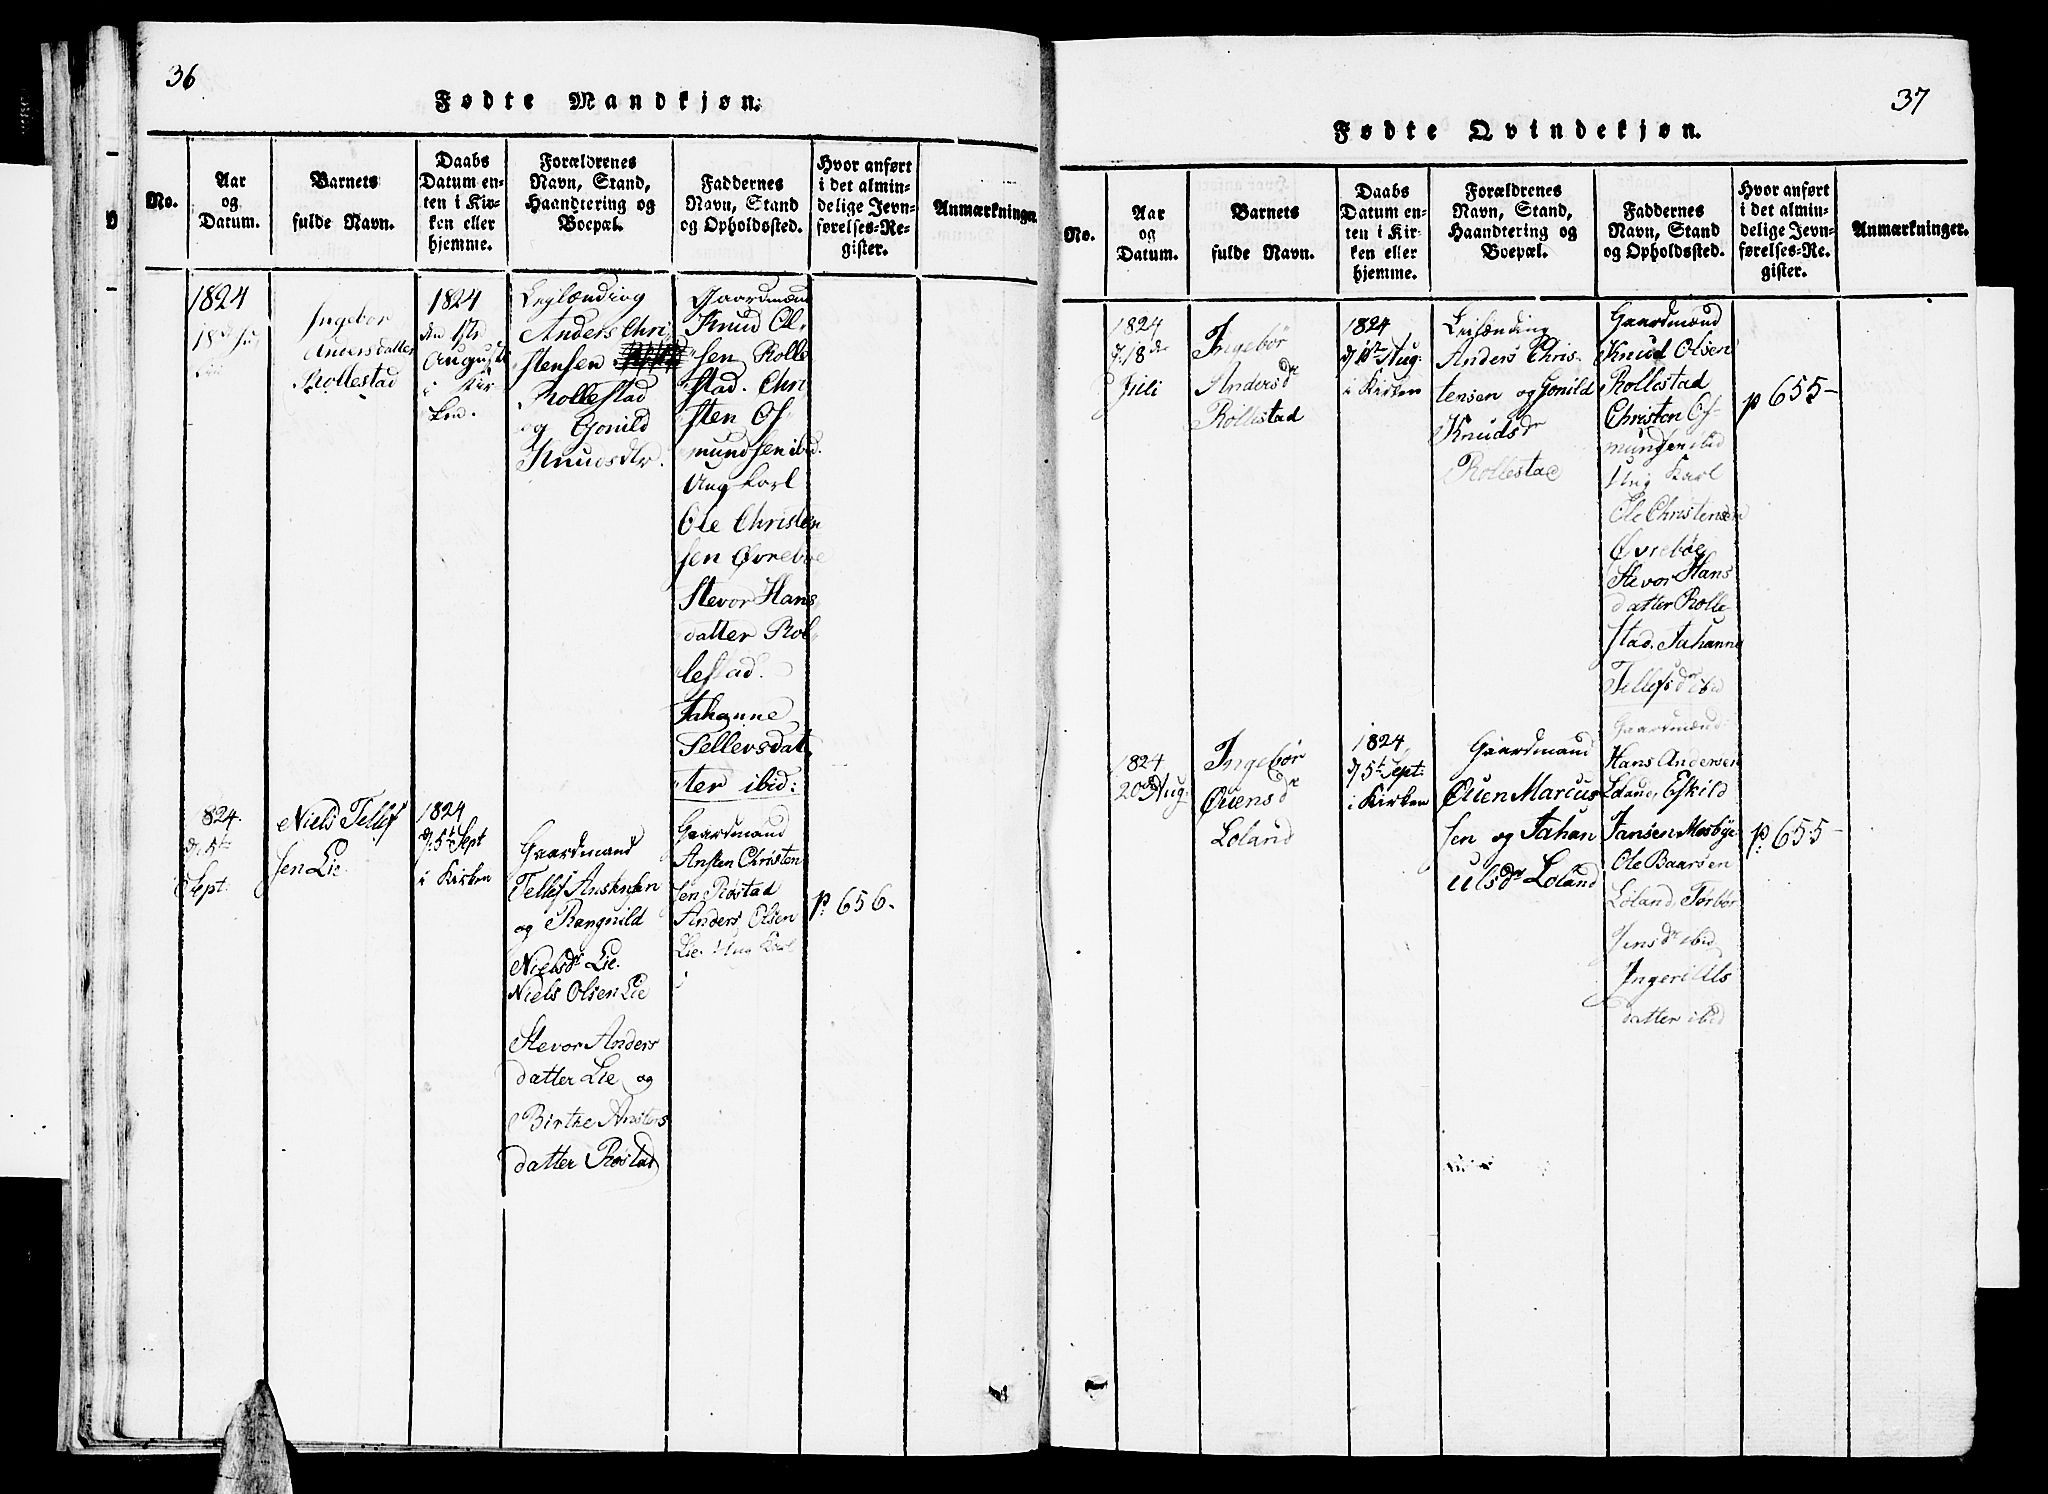 36
Fødte Mandkjøn.
No.
Aar
og
Datum.
Barnets
fulde Navn.
Daabs
Datum en-
ten i Kir-
ken eller
hjemme.
Forældrenes
Navn, Stand,
Haandtering og
Boepæl.
Faddernes
Navn, Stand
og Opholdssted.
Hvor anført
i det almin-
delige Jevn-
førelses-Re-
gister.
Anmærkninger.
1824
18de
Ingebor
Andersdatter
Rollestad
1824
den 1ste
August
i Kir
ken.
Leylænding
Anders Chri
stensen
Rollestad
og Gonild
Knudsdtr.
Gaardmænd
Knud Ol-
sen Rolle
stad. Chri
sten Os-
mundsen ibid.
Ung karl
Ole Christen
sen Øvrebøe
Stevor Hans
datter Rol-
lestad.
Jahanne
Tellevsdat
ter ibid:
824.
d. 5te
Sept:
Niels Tellef
sen Lie
1824
d. 5t Sept
i Kirken
Gaardmand
Tellef Anstensen
og Rangnild
Nielsdr Lie.
Niels Olsen Lie
Stevor Anders
datter Lie og
Birthe Anstens
datter Røstad
Gaardmand
Ansten Christen
sen Røstad
Anders Olsen
Lie. Ung Karl
p. 656.
37
Fødte Qvindekjøn.
No.
Aar
og
Datum.
Barnets
fulde Navn.
Daabs
Datum en-
ten i Kir-
ken eller
hjemme.
Forældrenes
Navn, Stand,
Haandtering og
Boepæl.
Faddernes
Navn, Stand
og Opholdssted.
Hvor anført
i det almin-
delige Jevn-
førelses-Re-
gister.
Anmærkninger.
1824
d. 18de
Juli
Ingebør
Andersdr
Rollestad
1824
d. 1ste Aug:
i Kirken
Leilænding
Anders Chris-
tensen og Gonild
Knudsdr
Rollestad
Gaardmænd
Knud Olsen
Rollestad
Christen Os-
mundsen ibid
Ung Karl
Ole Christensen
Øvrebøe
Stevor Hans
datter Rolle
stad. Jahanne
Tellefsdr ibid
p 655-
1824
20de Aug:
Ingebør
Øuensdr
Loland
1824
d. 5t Sept:
i Kirken
Gaardmand
Øuen Marcus
sen og Jahan
Ulsdr Loland
Gaardmænd:
Hans Andersen
Loland, Eskild
Jansen Mosbye
Ole Baarsen
Loland. Torbør
Jensdr ibid
Ingeri Uls
datter ibid
p. 655-